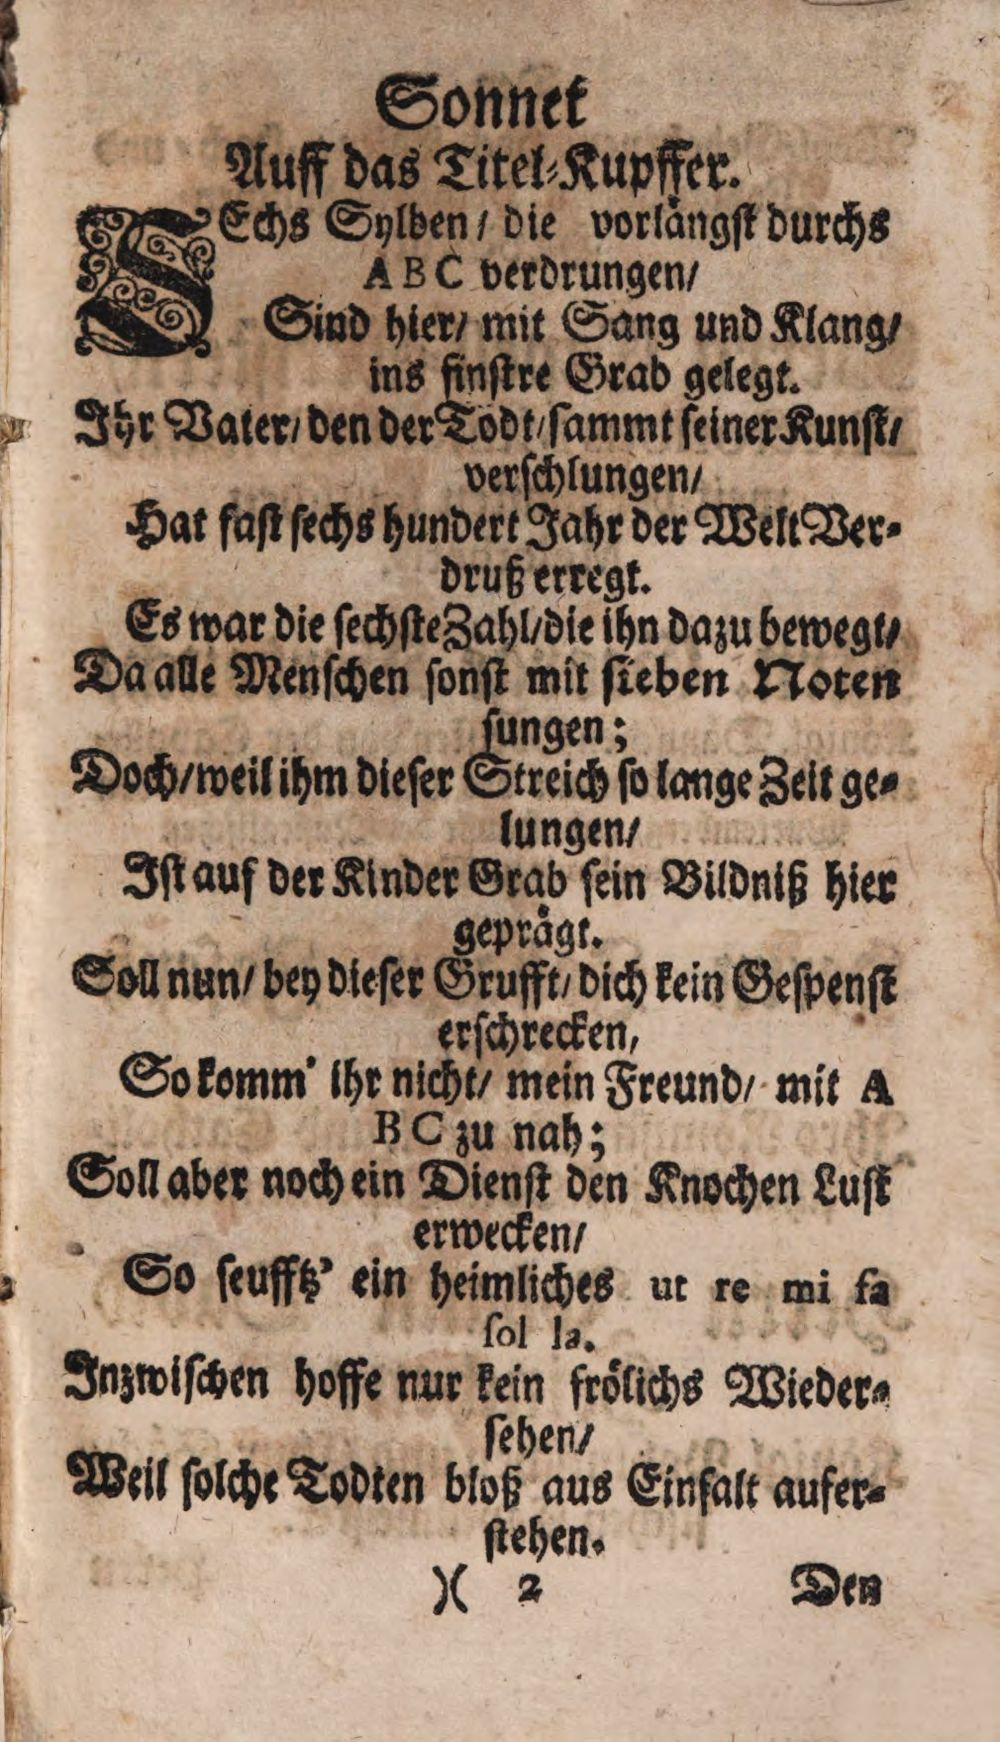 Sonnet
Auff das Titel-Kupffer.
SEchs Sylben / die vorlaͤngst durchs
A B C verdrungen/
Sind hier/ mit Sang und Klang/
ins finstre Grab gelegt.
Ihr Vater/ den der Todt/ sammt seiner Kunst/
verschlungen/
Hat fast sechs hundert Jahr der Welt Ver-
druß erregt.
Es war die sechste Zahl/ die ihn dazu bewegt/
Da alle Menschen sonst mit sieben Noten
sungen;
Doch/ weil ihm dieser Streich so lange Zeit ge-
lungen/
Ist auf der Kinder Grab sein Bildniß hier
gepraͤgt.
Soll nun/ bey dieser Grufft/ dich kein Gespenst
erschrecken,
So komm' ihr nicht/ mein Freund/ mit A
B C zu nah;
Soll aber noch ein Dienst den Knochen Lust
erwecken/
So seufftz' ein heimliches ut re mi fa
sol la.
Inzwischen hoffe nur kein froͤlichs Wieder-
sehen/
Weil solche Todten bloß aus Einfalt aufer-
stehen.
)( 2 Den